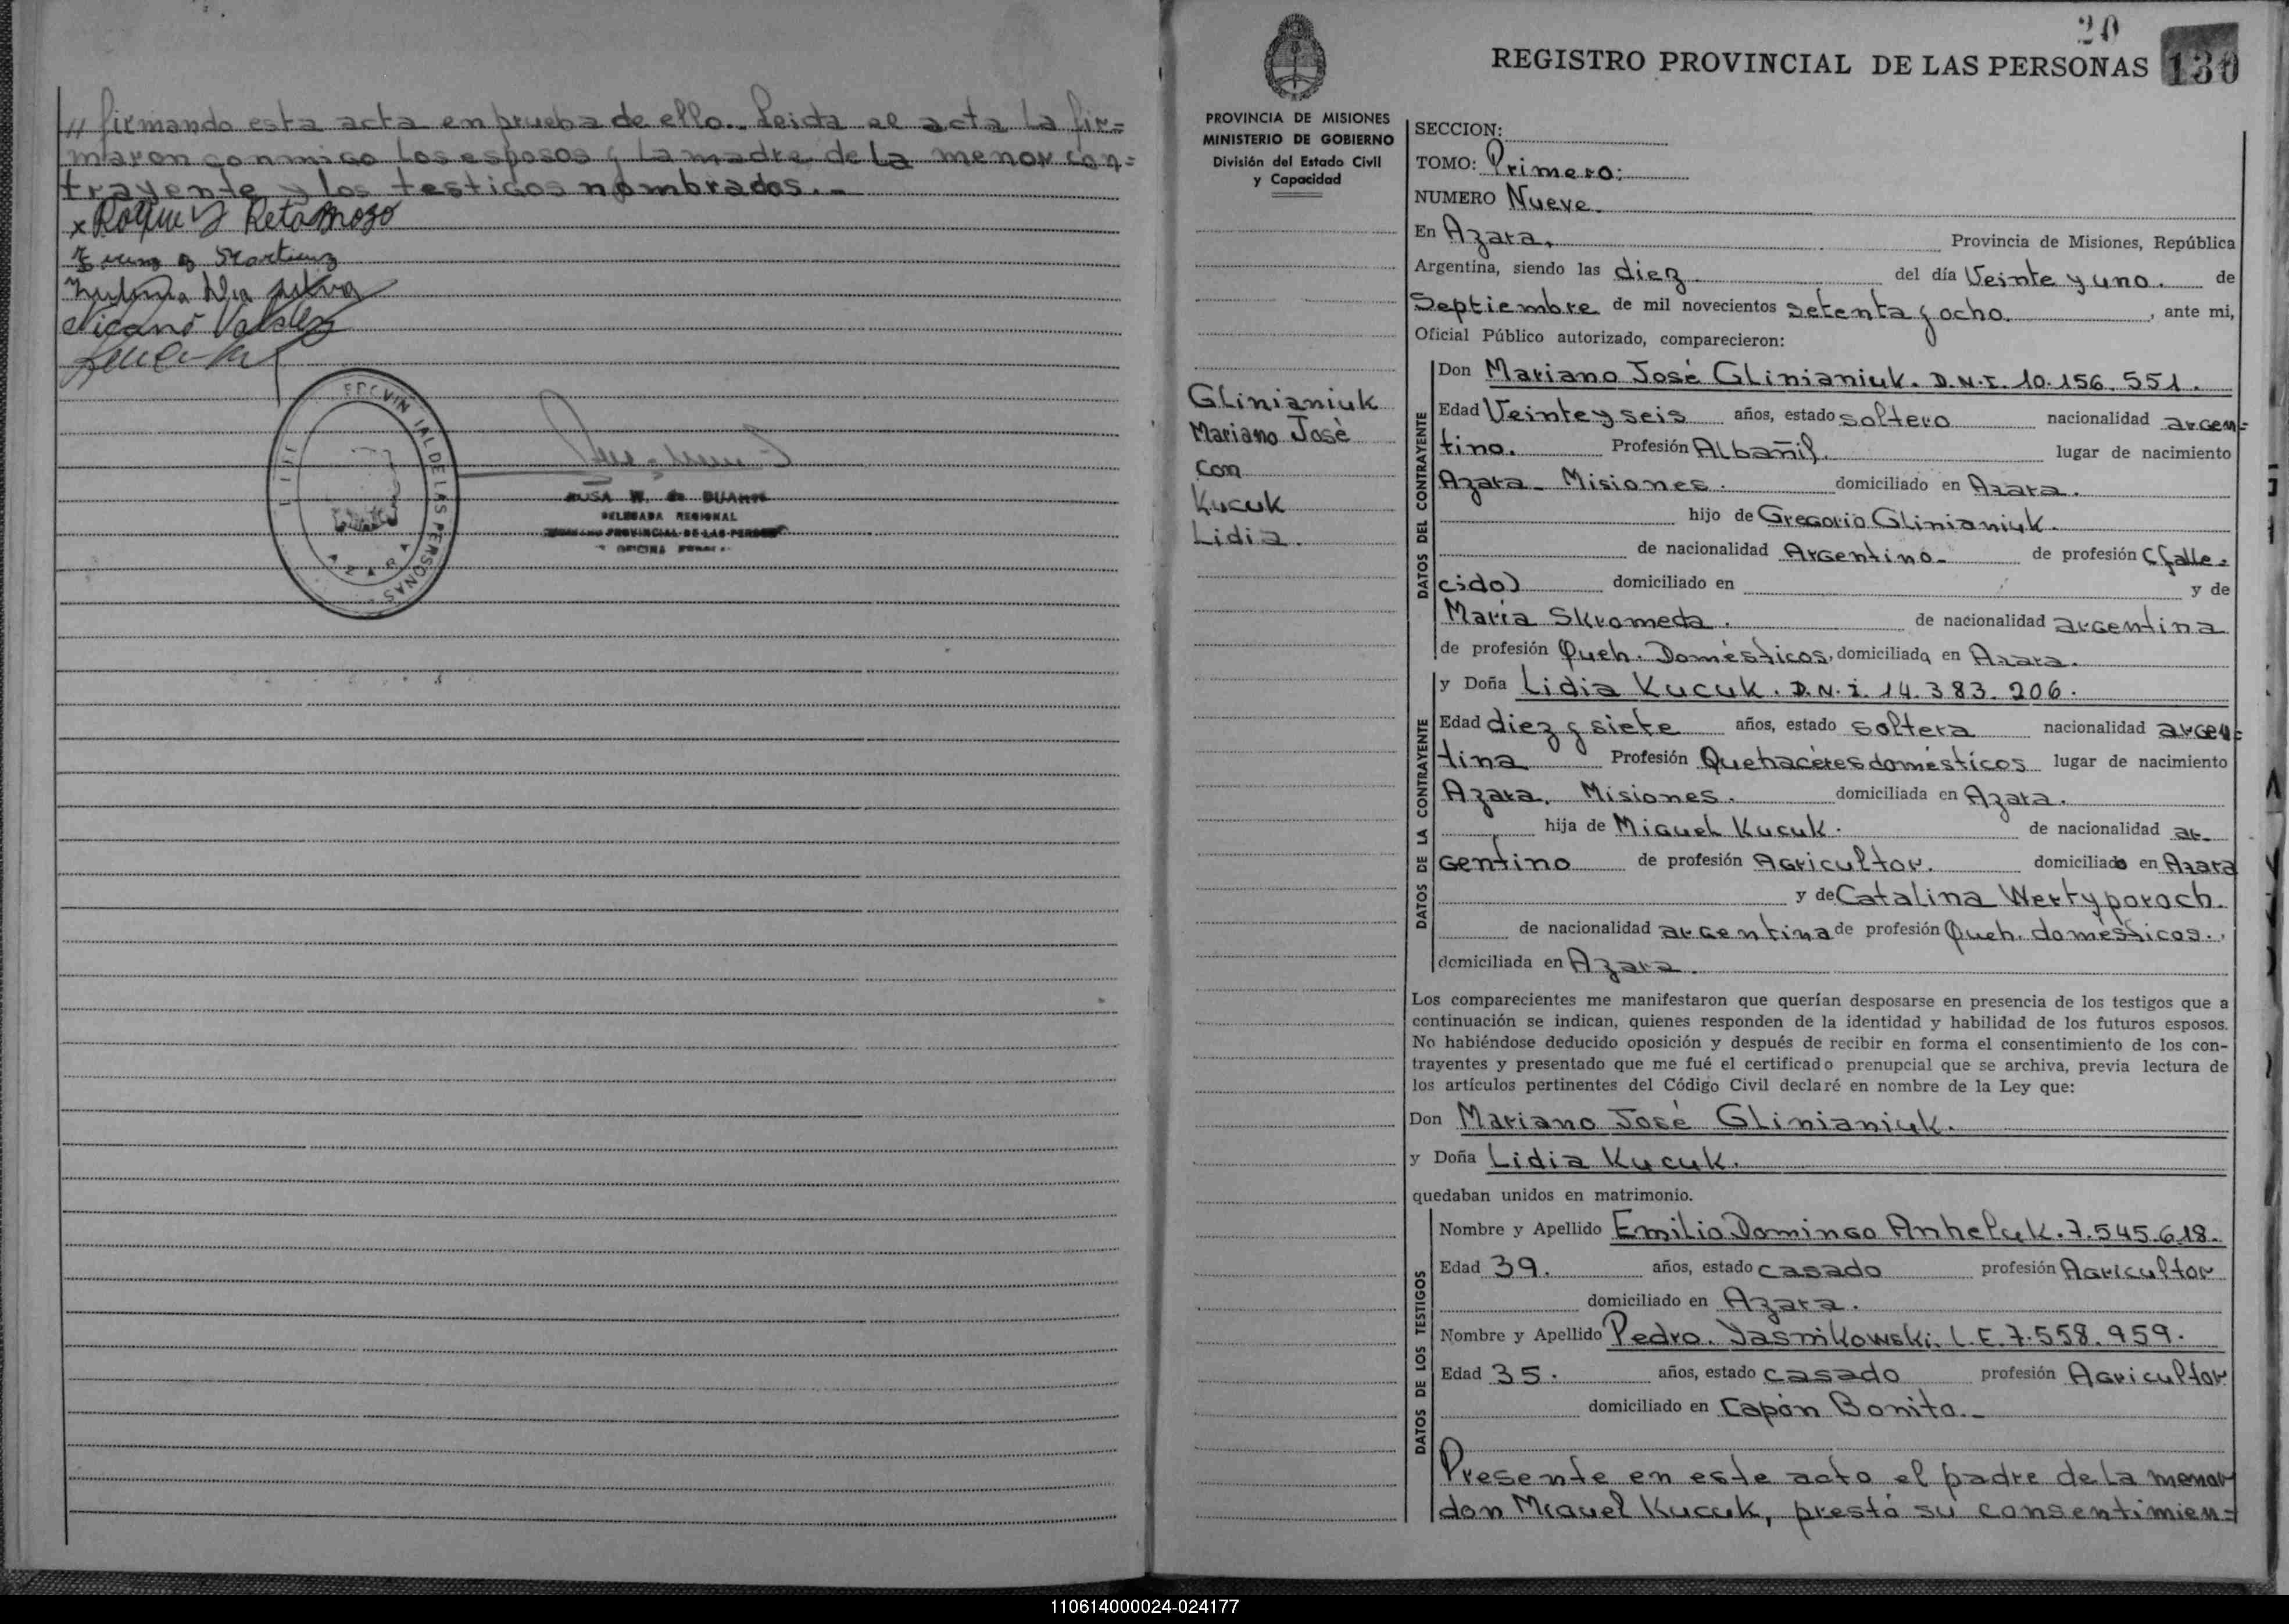 // firmando esta acta en prueba de ello.- Leida el acta la fir=
maron conmigo los esposos y la madre de la menor con=
trayente y los testigos nombrados.-
x Roque Retamozo
Martinez
Zulma Da Silva
Nicanor Valdez
PROVINCIAL DE LAS PERSONAS
AZARA
DELEGADA REGIONAL
REGISTRO PROVINCIAL DE LAS PERSONAS
20
REGISTRO PROVINCIAL DE LAS PERSONAS 130
PROVINCIA DE MISIONES
MINISTERIO DE GOBIERNO
División del Estado Civil
y Capacidad
Glinianiuk
Mariano José
con
Kucuk
Lidia.
SECCION:
TOMO: Primero:
NUMERO Nueve.
En Azara, Provincia de Misiones, República
Argentina, siendo las diez del día Veinte y uno. de
Septiembre de mil novecientos setenta y ocho. , ante mi,
Oficial Público autorizado, comparecieron:
DATOS DEL CONTRAYENTE
Don Mariano José Glinianiuk. D.N.I. 10.156.551.
Edad Veinte y seis años, estado soltero nacionalidad argen=
tino. Profesión Albañil. lugar de nacimiento
Azara - Misiones. domiciliado en Azara.
hijo de Gregorio Glinianiuk.
de nacionalidad Argentino- de profesión (falle=
cido) domiciliado en y de
María Skromeda. de nacionalidad argentina
de profesión Queh. Domésticos, domiciliada en Azara.
DATOS DE LA CONTRAYENTE
y Doña Lidia Kucuk. D.N.I. 14.383.206.
Edad diez y siete años, estado soltera nacionalidad argen=
tina Profesión Quehaceres domésticos lugar de nacimiento
Azara, Misiones. domiciliada en Azara.
hija de Miguel Kucuk. de nacionalidad ar-
gentino de profesión Agricultor. domiciliado en Azara
y de Catalina Wertyporoch.
de nacionalidad argentina de profesión Queh. domésticos.
domiciliada en Azara.
Los comparecientes me manifestaron que querían desposarse en presencia de los testigos que a
continuación se indican, quienes responden de la identidad y habilidad de los futuros esposos.
No habiéndose deducido oposición y después de recibir en forma el consentimiento de los con-
trayentes y presentado que me fué el certificado prenupcial que se archiva, previa lectura de
los artículos pertinentes del Código Civil declaré en nombre de la Ley que:
Don Mariano José Glinianiuk.
y Doña Lidia Kucuk.
quedaban unidos en matrimonio.
DATOS DE LOS TESTIGOS
Nombre y Apellido Emilio Domingo Anheluk. 7.545.618.
Edad 39. años, estado casado profesión Agricultor
domiciliado en Azara.
Nombre y Apellido Pedro Yasnikowski. L.E. 7.558.959.
Edad 35. años, estado casado profesión Agricultor
domiciliado en Capón Bonito.-
Presente en este acto el padre de la menor
don Miguel Kucuk, prestó su consentimien=
110614000024-024177